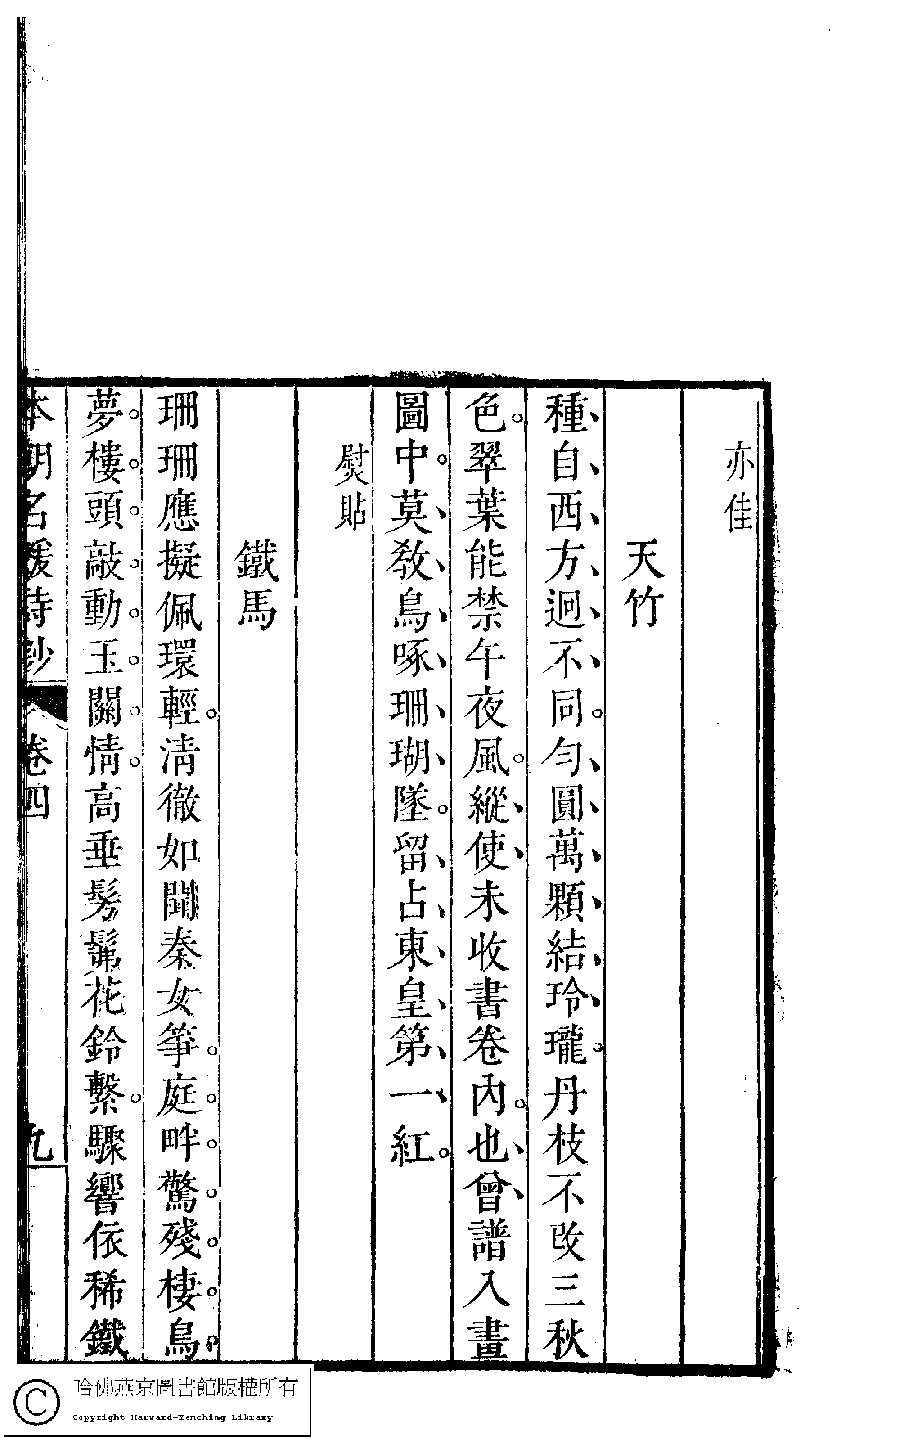 亦佳
天竹
種自西方迥不同勻圓萬顆結玲瓏丹枝不改三秋
色翠葉能禁午夜風縱使未收書卷內也曾譜入畫
圖中莫教鳥啄珊瑚墜留占東皇第一紅
熨貼
鐵馬
珊珊應擬佩環輕淸徹如聞秦女箏庭畔驚殘棲鳥
夢樓頭敲動玉關情高垂髣髴花鈴繫驟響依稀鐵
本朝名媛詩鈔 卷四 九
哈佛燕京圖書館版權所有
Copyright Harvard-Yenching Library